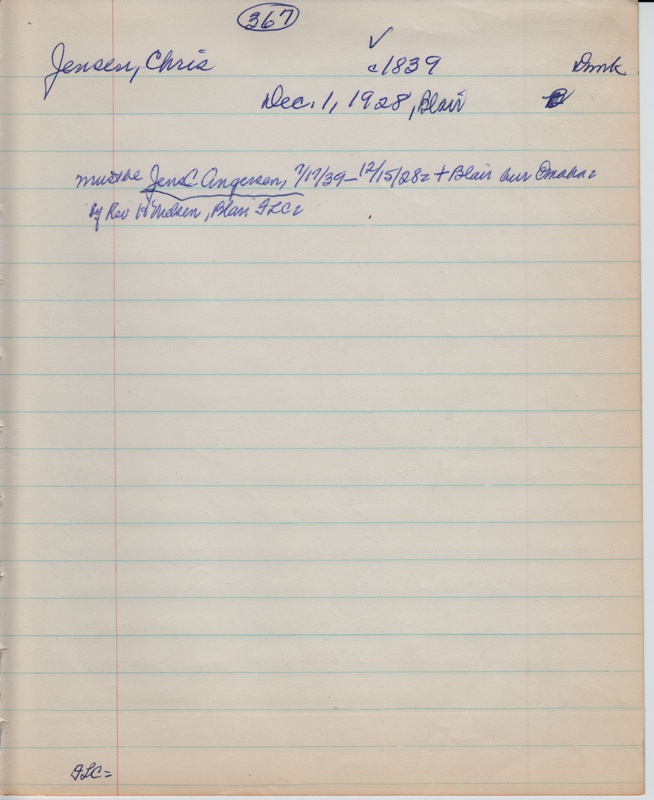 367
Jensen, Chris ✓ c1839 Dmk
Dec. 1, 1928, Blair
must be Jens C Andersen, 7/17/39 – 12/15/28 = + Blair bur Omaha =
by Rev H Nielsen, Blair FLC =
FLC =